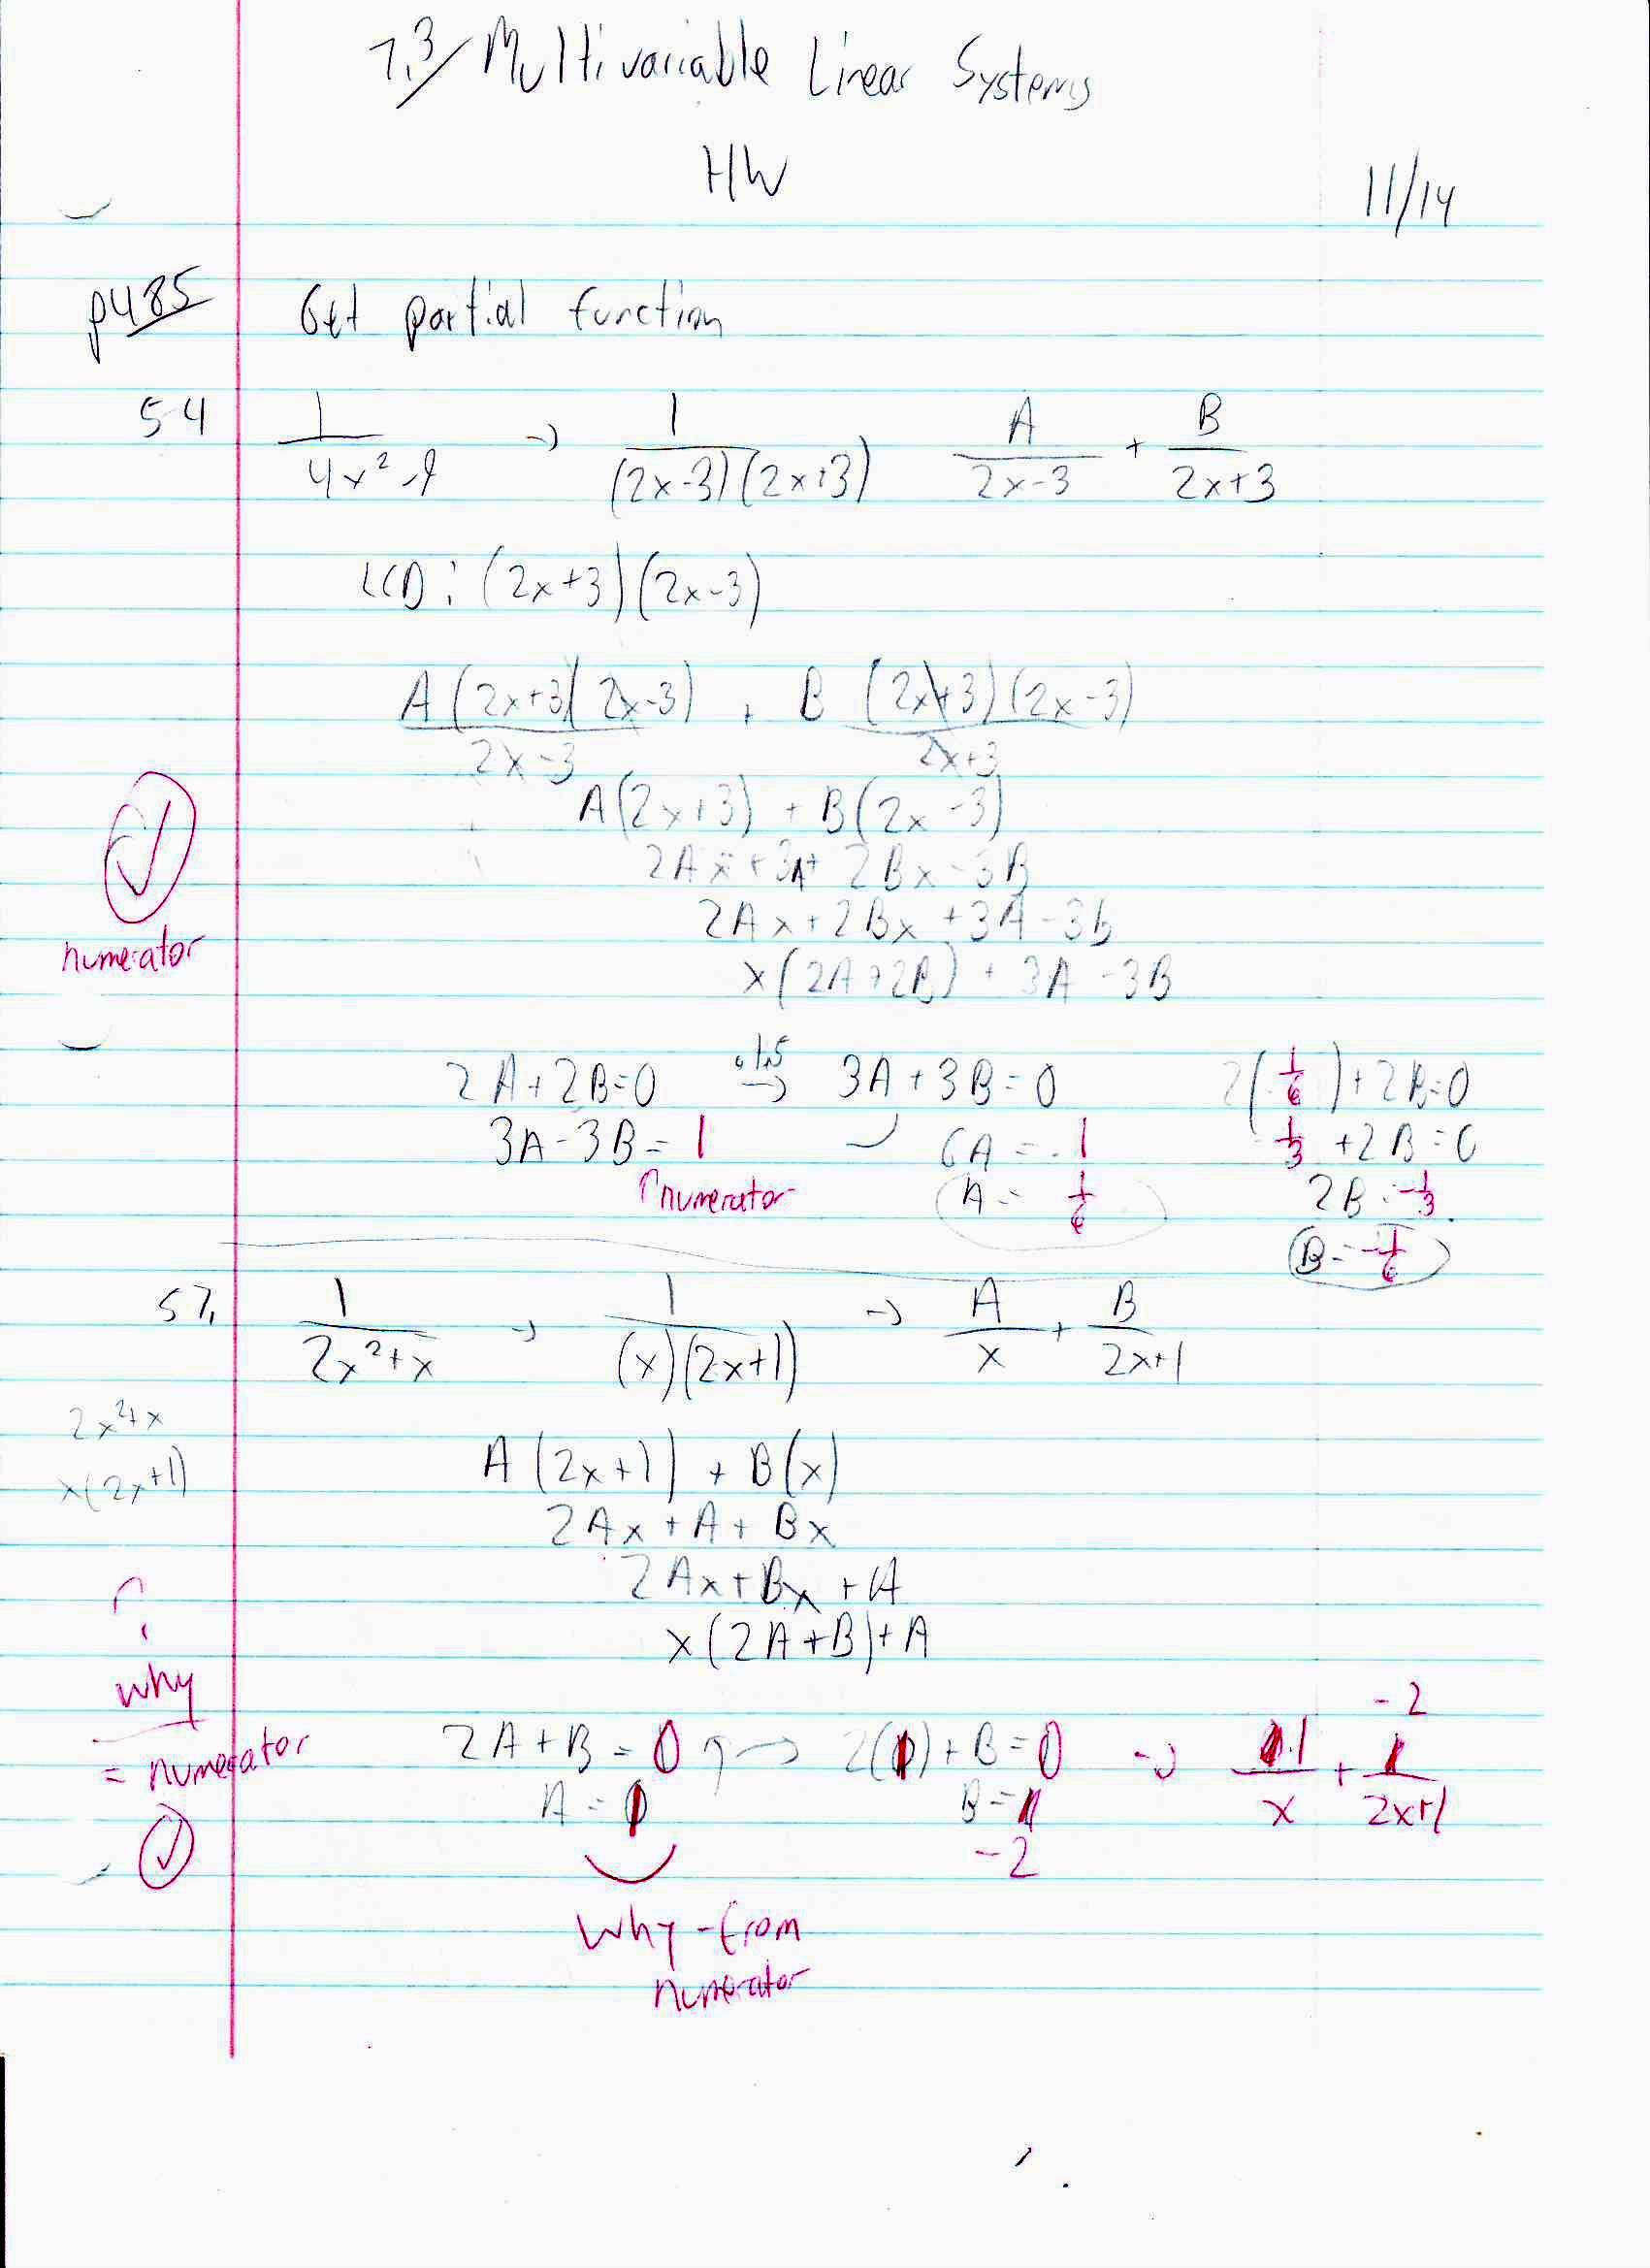 7.3/ Multivariable Linear Systems
HW
11/14
p485 Get partial function
54 1/(4x² - 9) → 1/((2x-3)(2x+3)) A/(2x-3) + B/(2x+3)
LCD: (2x+3)(2x-3)
A(2x+3)(2x-3)/(2x-3) + B(2x+3)(2x-3)/(2x+3)
A(2x+3) + B(2x-3)
2Ax + 3A + 2Bx - 3B
numerator 2Ax + 2Bx + 3A - 3B
x(2A+2B) + 3A - 3B
2A+2B=0 → 3A+3B=0 2(1/6)+2B=0
3A-3B=1 6A = 1 1/3 +2B=0
↑numerator A = 1/6 2B=-1/3
B=-1/6
57. 1/(2x²+x) → 1/((x)(2x+1)) → A/x + B/(2x+1)
2x²+x
x(2x+1)
A(2x+1) + B(x)
2Ax + A + Bx
2Ax + Bx + A
x(2A+B)+A
?
why
= numerator
2A+B=0 → 2(1)+B=0 → 1/x + -2/(2x+1)
A=1 B=
-2
Why - from
numerator